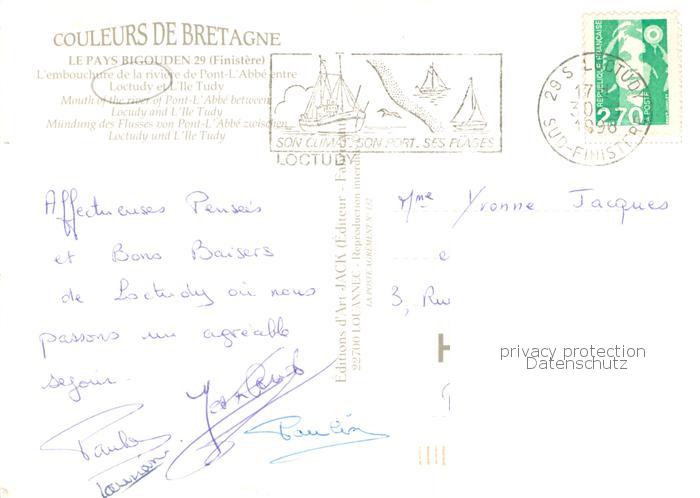 COULEURS DE BRETAGNE
LE PAYS BIGOUDEN 29 (Finistère)
L'embouchure de la rivière de Pont-L'Abbé entre
Loctudy et L'Ile Tudy
Mouth of the river of Pont-L'Abbé between
Loctudy and L'Ile Tudy
Mündung des Flusses von Pont-L'Abbé zwischen
Loctudy und L'Ile Tudy
SON CLIMAT. SON PORT. SES PLAGES
LOCTUDY
29 S LOCTUDY
17
30
1996
SUD-FINISTERE
REPUBLIQUE FRANÇAISE
2,70
LA POSTE
Affectueuses Pensées
et Bons Baisers
de Loctudy où nous
passons un agréable
séjour.
Paulin
Editions d'Art JACK (Éditeur - Fabricant)
22700 LOUANNEC - Reproduction interdite
LA POSTE AGRÉMENT N° 132
Mme Yvonne Jacques
3, Ru
privacy protection
Datenschutz